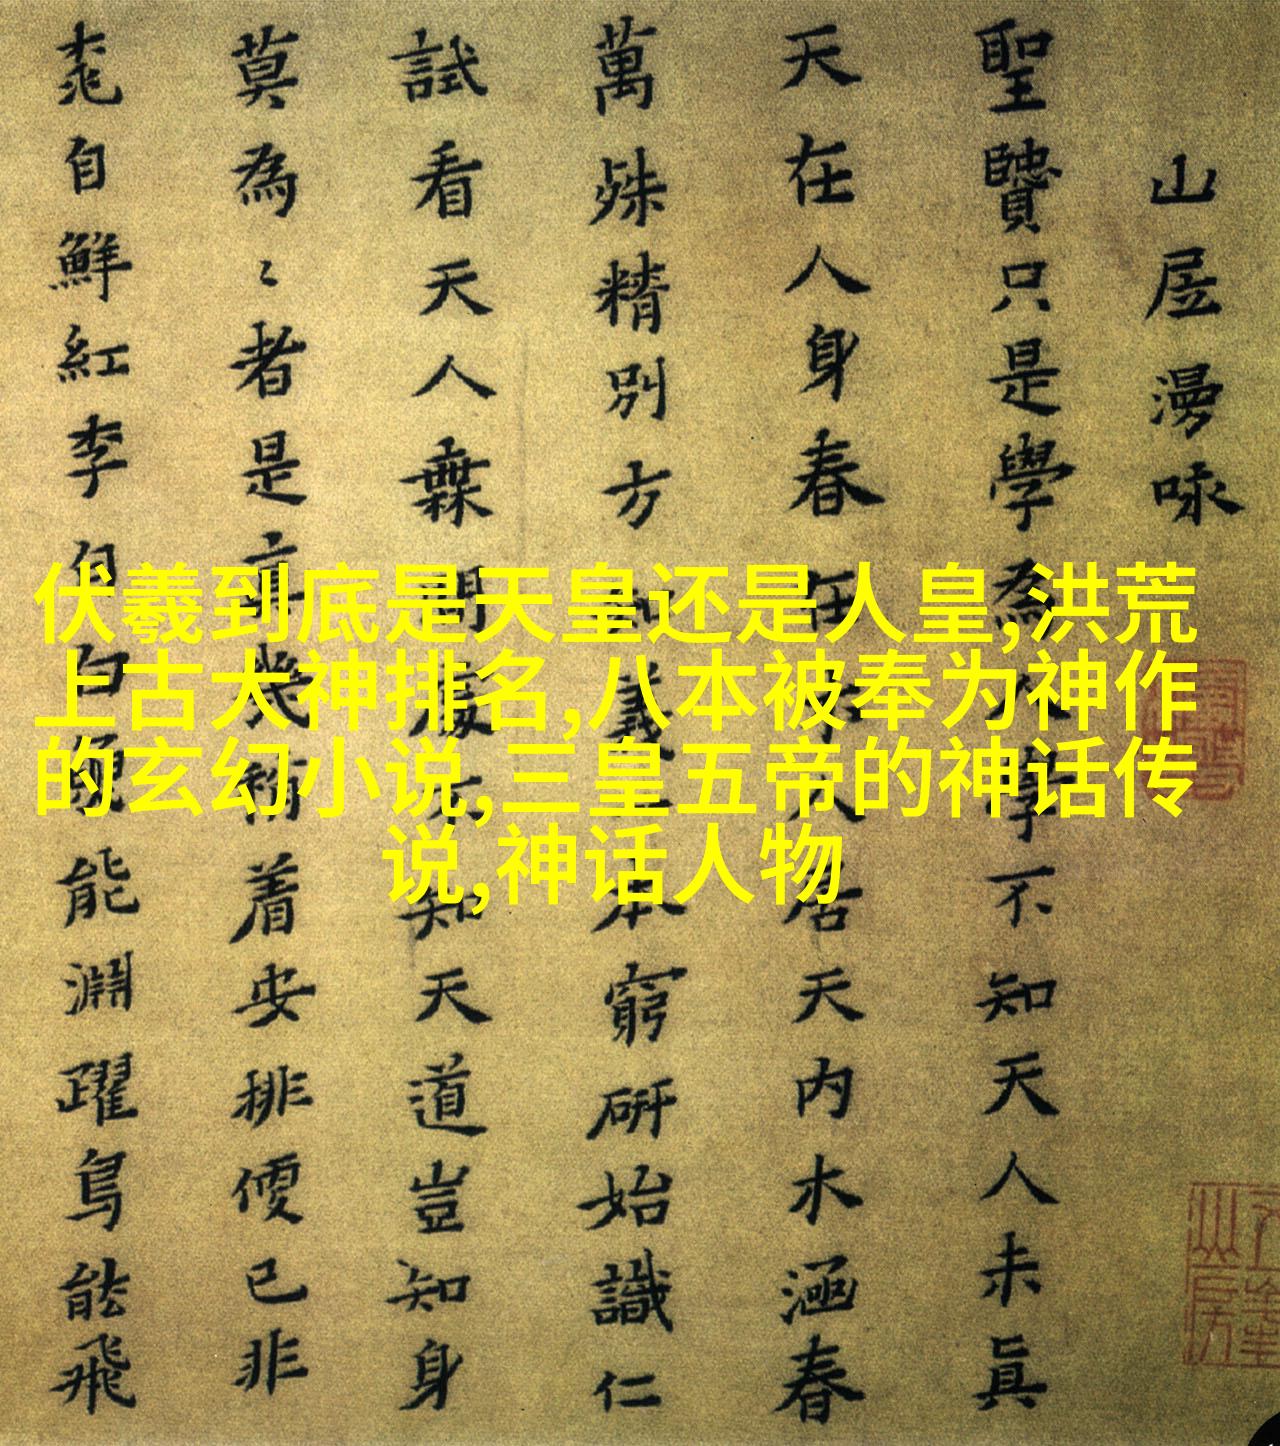 山居漫咏
聖贒只是學為人學不知天人未眞
天在人身春在人居天內木涵春
萬殊精別方知義本窮研始識仁
試看天人無間處不知天道豈知身
莫為〻者是真幾纔着安排便已非
桃自鮮紅李自白魚能淵躍鳥能飛
伏羲到底是天皇还是人皇,洪荒
上古大神排名,八本被奉为神作
的玄幻小说,三皇五帝的神话传
说,神话人物